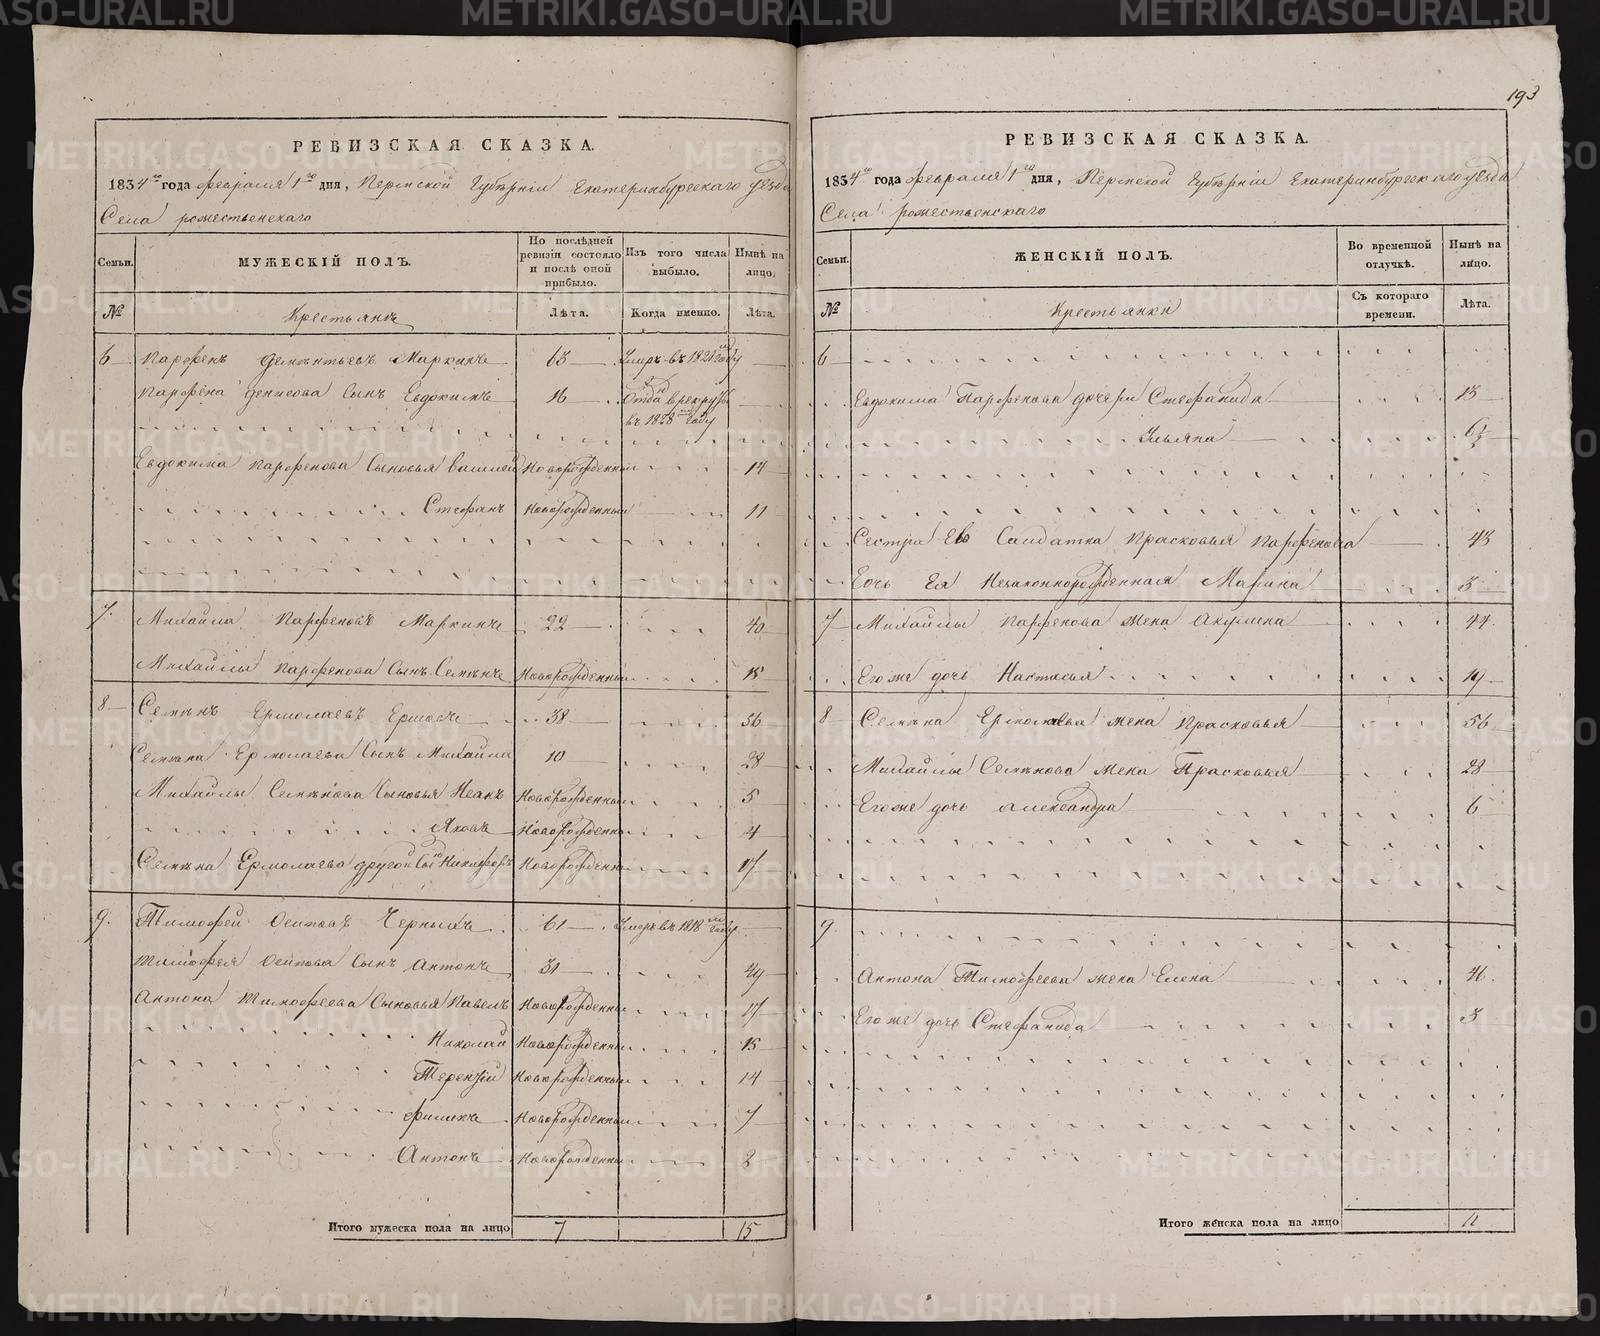 193
РЕВИЗСКАЯ СКАЗКА.
1834го года февраля 1го дня, Пермской Губѣрнiи Екатеринбургскаго уѣзда
Села рожественскаго
Семьи.
МУЖЕСКІЙ ПОЛЪ.
По послѣдней ревизіи состояло и послѣ оной прибыло.
Изъ того числа выбыло.
Нынѣ на лицо.
№
Крестьянъ
Лѣта.
Когда именно.
Лѣта.
6 Парфенъ Дементьевъ Маркинъ 63 Умеръ въ 1821м году
Парфена сынъ Евдокимъ 16 Отданъ в рекруты
въ 1828м году
Евдокима Парфенова Сыновья Новорожденный 14
Стефанъ Новорожденный 11
7. Михайла Парфеновъ Маркинъ 22 40
Михайлы Парфенова Сынъ Семенъ Новорожденный 15
8 Семенъ Ермолаевъ Ершовъ 38 56
Семена Ермолаева Сынъ Михайла 10 28
Михайлы Семенова Сыновья Иванъ Новорожденный 5
Яковъ Новорожденный 4
Семена Ермолаева другой Сынъ Никифоръ Новорожденный 17
9. Тимофей Осиповъ Черныхъ 61 Умеръ въ 1818м году
Тимофея Осипова Сынъ Антонъ 31 49
Антона Тимофеева Сыновья Павелъ Новорожденный 17
Николай Новорожденный 15
Терентiй Новорожденный 14
Филипъ Новорожденный 7
Антонъ Новорожденный 2
Итого мужеска пола на лицо 7 15
РЕВИЗСКАЯ СКАЗКА.
1834го года февраля 1го дня, Пермской Губѣрнiи Екатеринбургскаго уѣзда
Села рожественскаго
Семьи.
ЖЕНСКІЙ ПОЛЪ.
Во временной отлучкѣ.
Нынѣ на лицо.
№
Крестьянки
Съ котораго времени.
Лѣта.
6
Евдокима Парфенова дочери Стефанида 13
Ульяна 6½
Сестра Ево Салдатка Прасковья Парфенова 43
Дочь Ея Незаконнорожденная Марина 3
7 Михайлы Парфенова жена Акулина 44
Егоже дочь Настасья 19
8 Семена Ермолаева жена Прасковья 56
Михайлы Семенова жена Прасковья 28
Егоже дочь александра 6
9
Антона Тимофеева жена Елена 41
Егоже дочь Стефанида 3
Итого женска пола на лицо 11